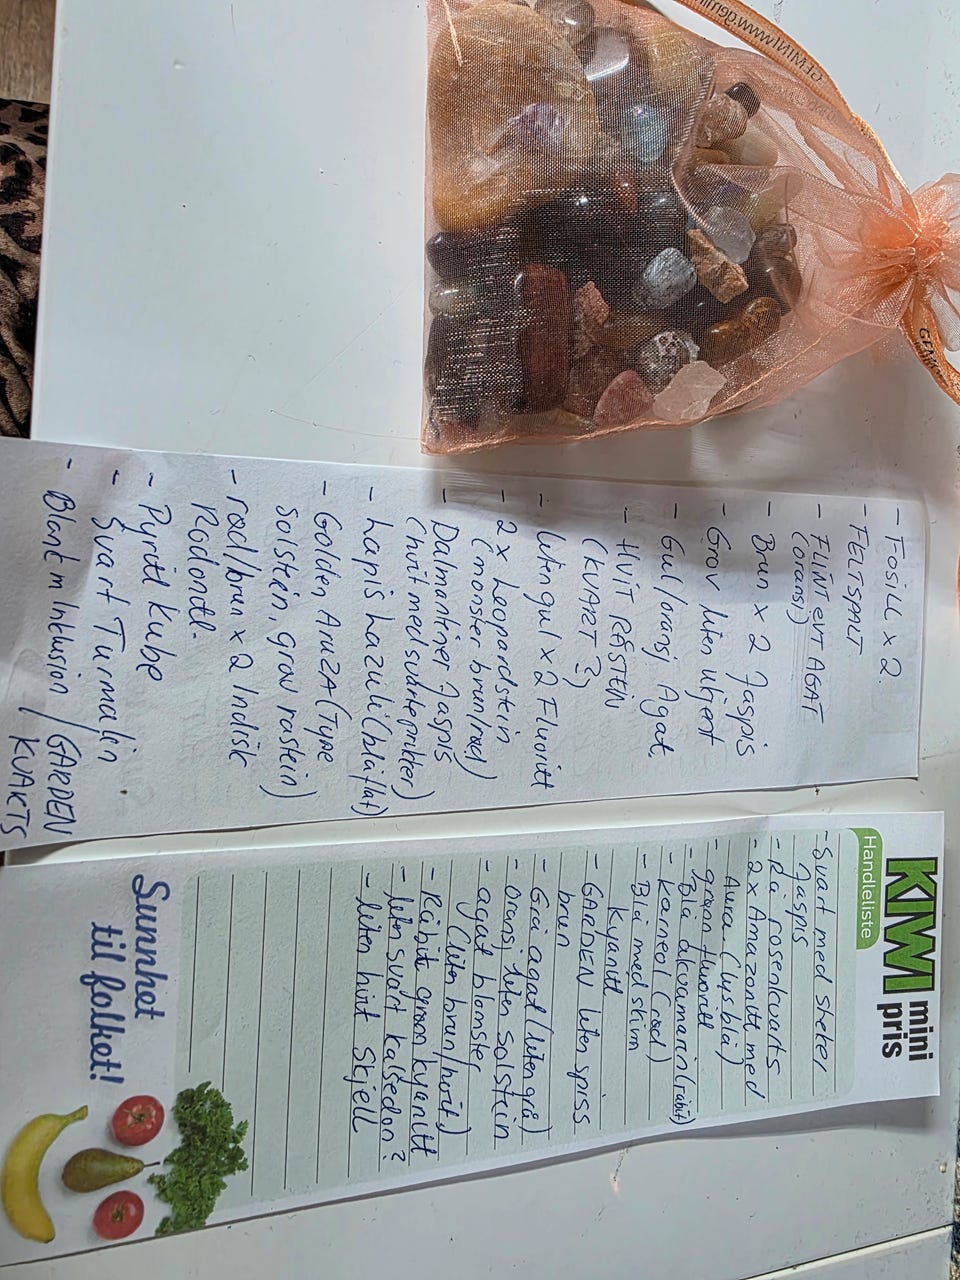 GEMINI
www.gemini
GEMI
- FOSILL x 2.
- FELTSPALT
- FLINT ekt AGAT
(oransj)
- Brun x 2 Jaspis
- Grov liten ukjent
- Gul/oransj Agat.
- HVIT RÅSTEIN
(KVART ?)
- liten gul x 2 Fluoritt
- 2 x Leopardstein
(monster brun/rød)
- Dalmantiner Jaspis
(hvit med svarte prikker)
- Lapis Lazuli (blå flat)
- Golden AruZA (Type
Solstein, grov råstein)
- rød/brun x 2 Indisk
Rodontt.
- Pyritt Kube
- Svart Turmalin
- Blank m Inklusion / GARDEN
KVARTS
KIWI mini pris
Handleliste
- Svart med streker
Jaspis
- Rå rosenkvarts
- 2 x Amazonitt med
Aura (lys blå)
- grønn fluoritt
- Blå akvamarin (råbit)
- Karneol (rød)
- Blå med skim
Kyanitt
- GARDEN liten spiss
brun
- Grå agat (liten grå)
- Oransj liten Solstein
- agat blomster
(liten brun/hvit)
- Råbit grønn kyanitt
- liten svart kalsedon?
- liten hvit Skjell
Sunnhet
til folket!